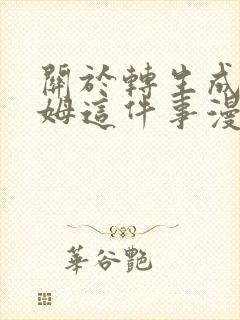 關於轉生成
姆這件事漫
華谷艷